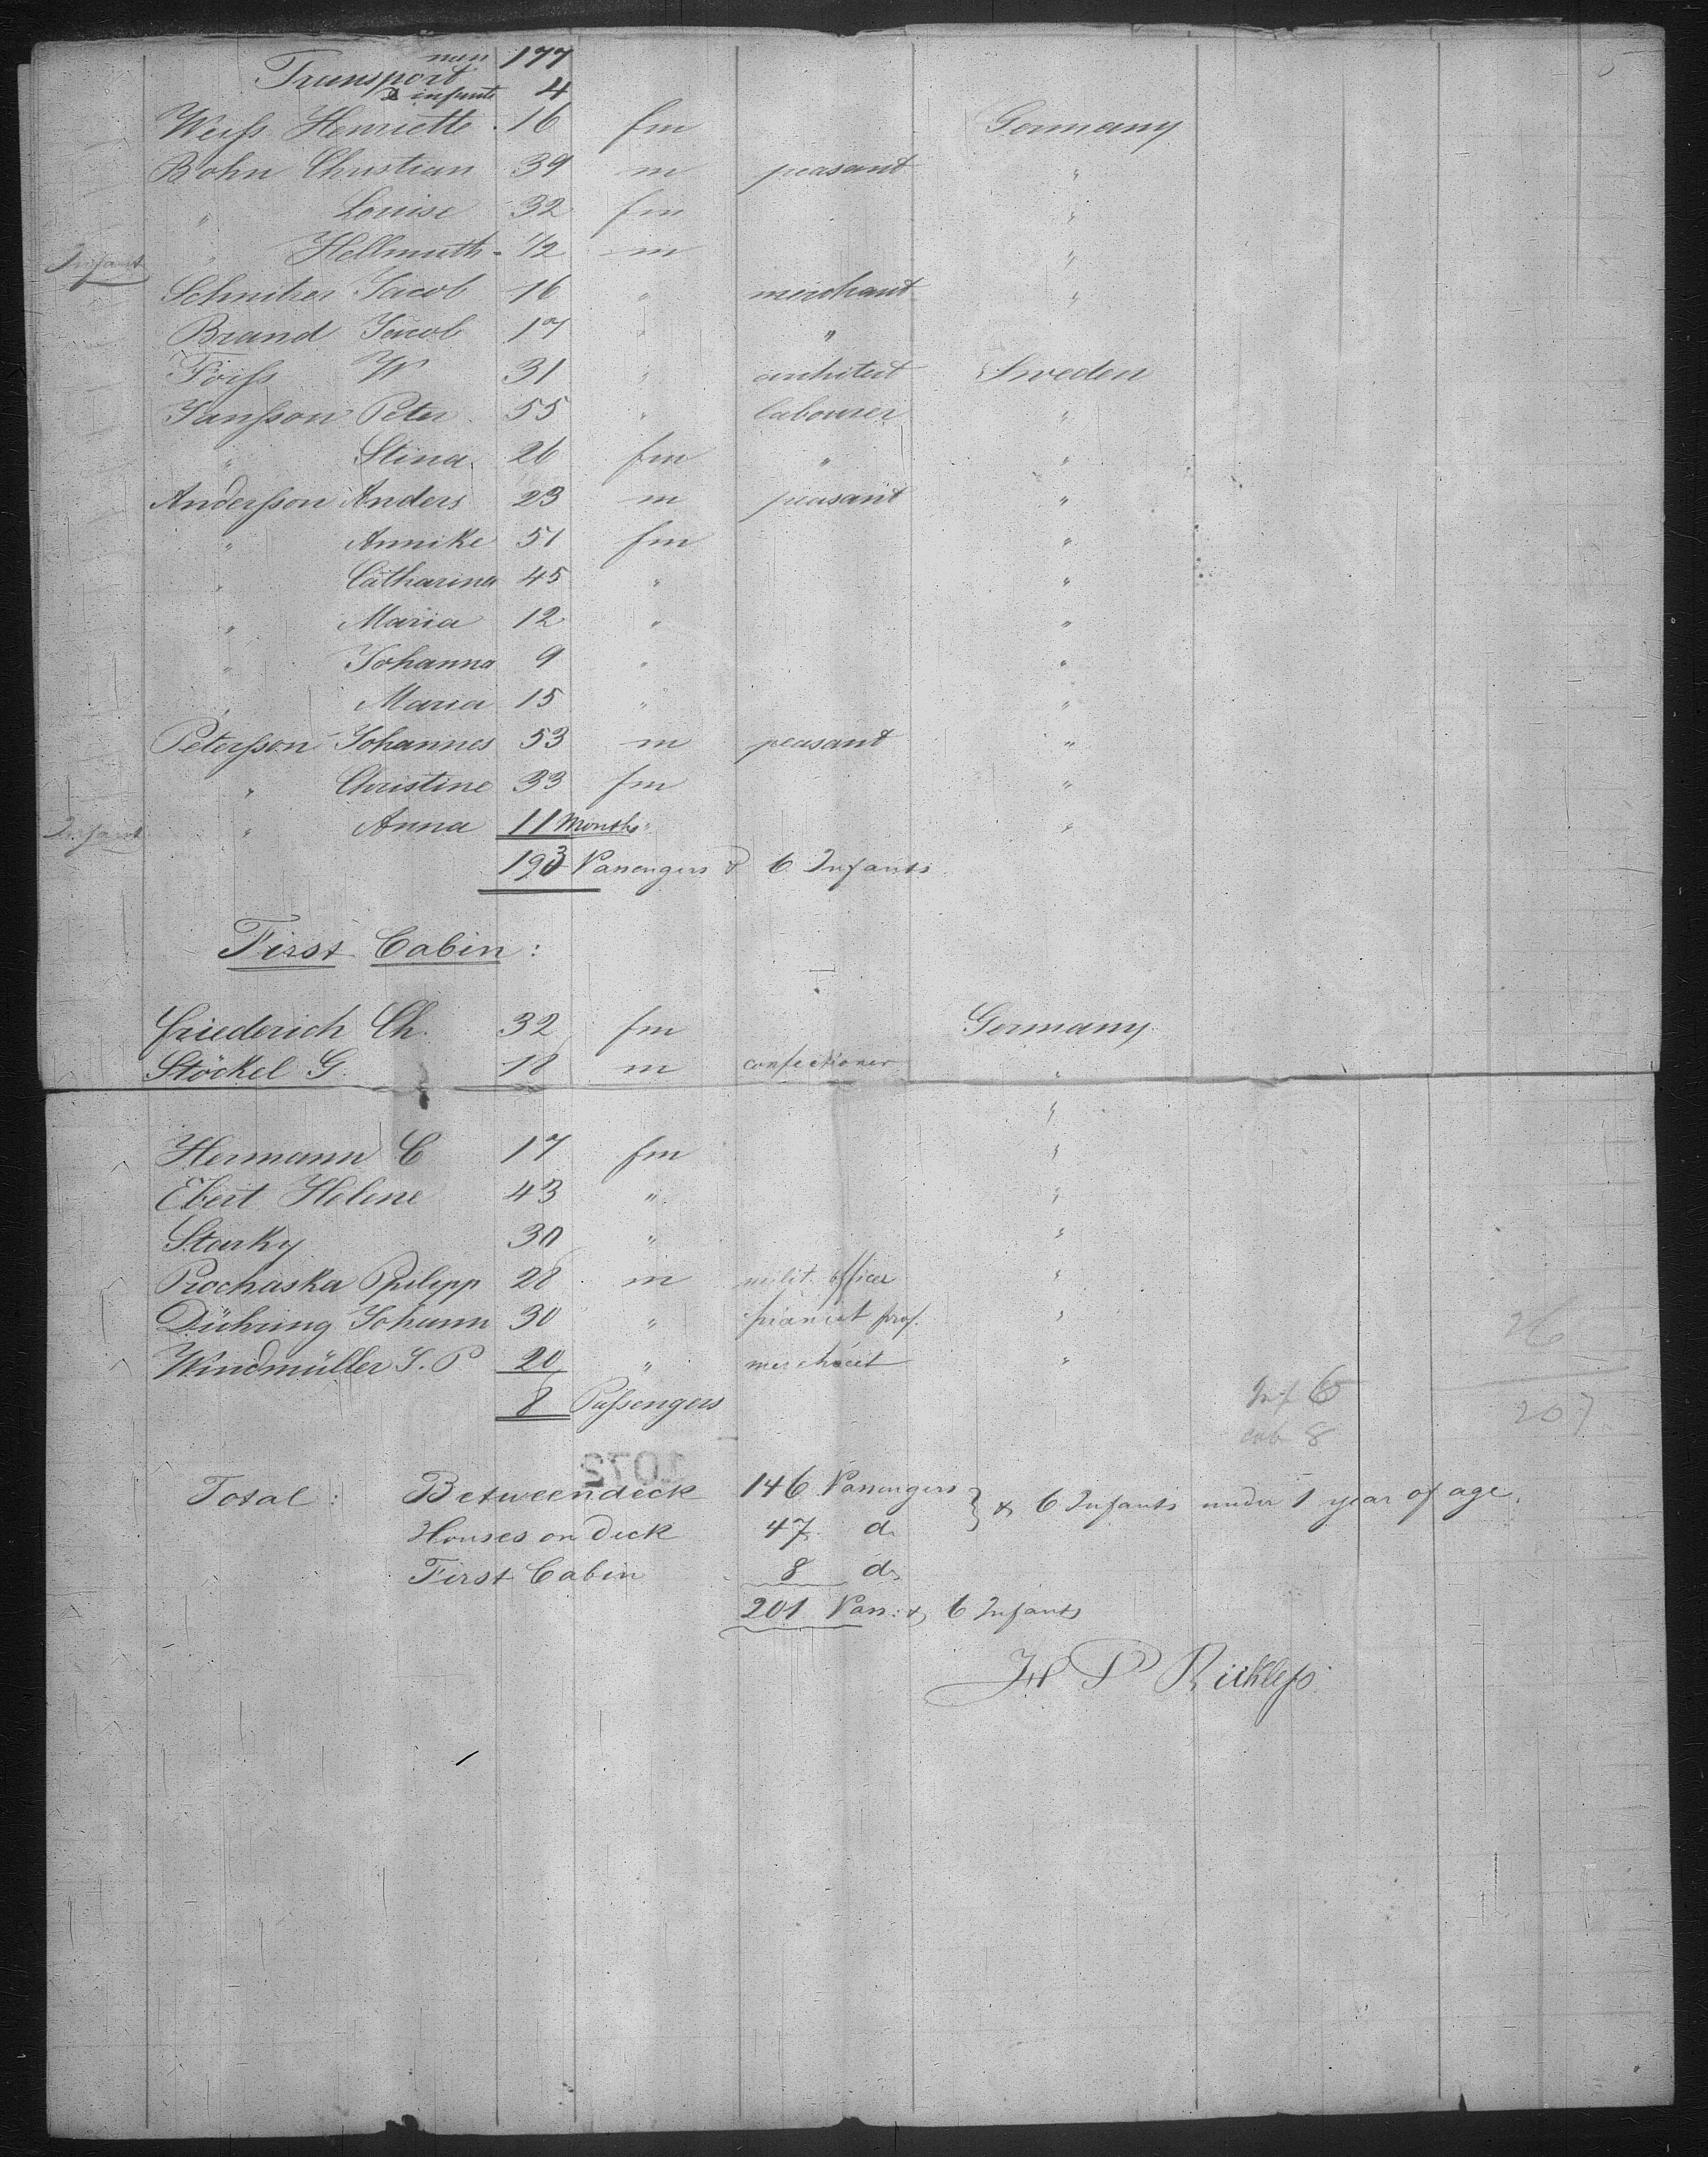 men 177
Transport
& infants 4
Weiss Henriette 16 fm Germany
Bohn Christian 39 m peasant "
" Louise 32 fm "
Infant " Hellmuth - 1/2 m "
Jacob 16 " merchant "
Brand Jacob 17 " "
W 31 " architect Sweden
Jansson Peter 55 " labourer "
" Stina 26 fm " "
Andersson Anders 23 m peasant "
" Annike 51 fm "
" Catharina 45 " "
" Maria 12 " "
" Johanna 9 " "
" Maria 15 " "
Petersson Johannes 53 m peasant "
" Christine 33 fm "
Infant " Anna 11 Months " "
193 Passengers & 6 Infants
First Cabin :
Friederich Ch. 32 fm Germany
Stöckel G. 18 m confectioner "
"
Hermann C 17 fm "
Ebert Helene 43 " "
Starky 30 " "
Prochaska Philipp 28 m milit. officer "
Dühring Johann 30 " pianist prof. "
Windmüller S. P 20 " merchant "
8 Passengers
26
Inf 6
207
cab 8
1072
Total : Betweendeck 146 Passengers } & 6 Infants under 1 year of age.
Houses on Deck 47 do
First Cabin 8 do
201 Pass: & 6 Infants
H P Rickless